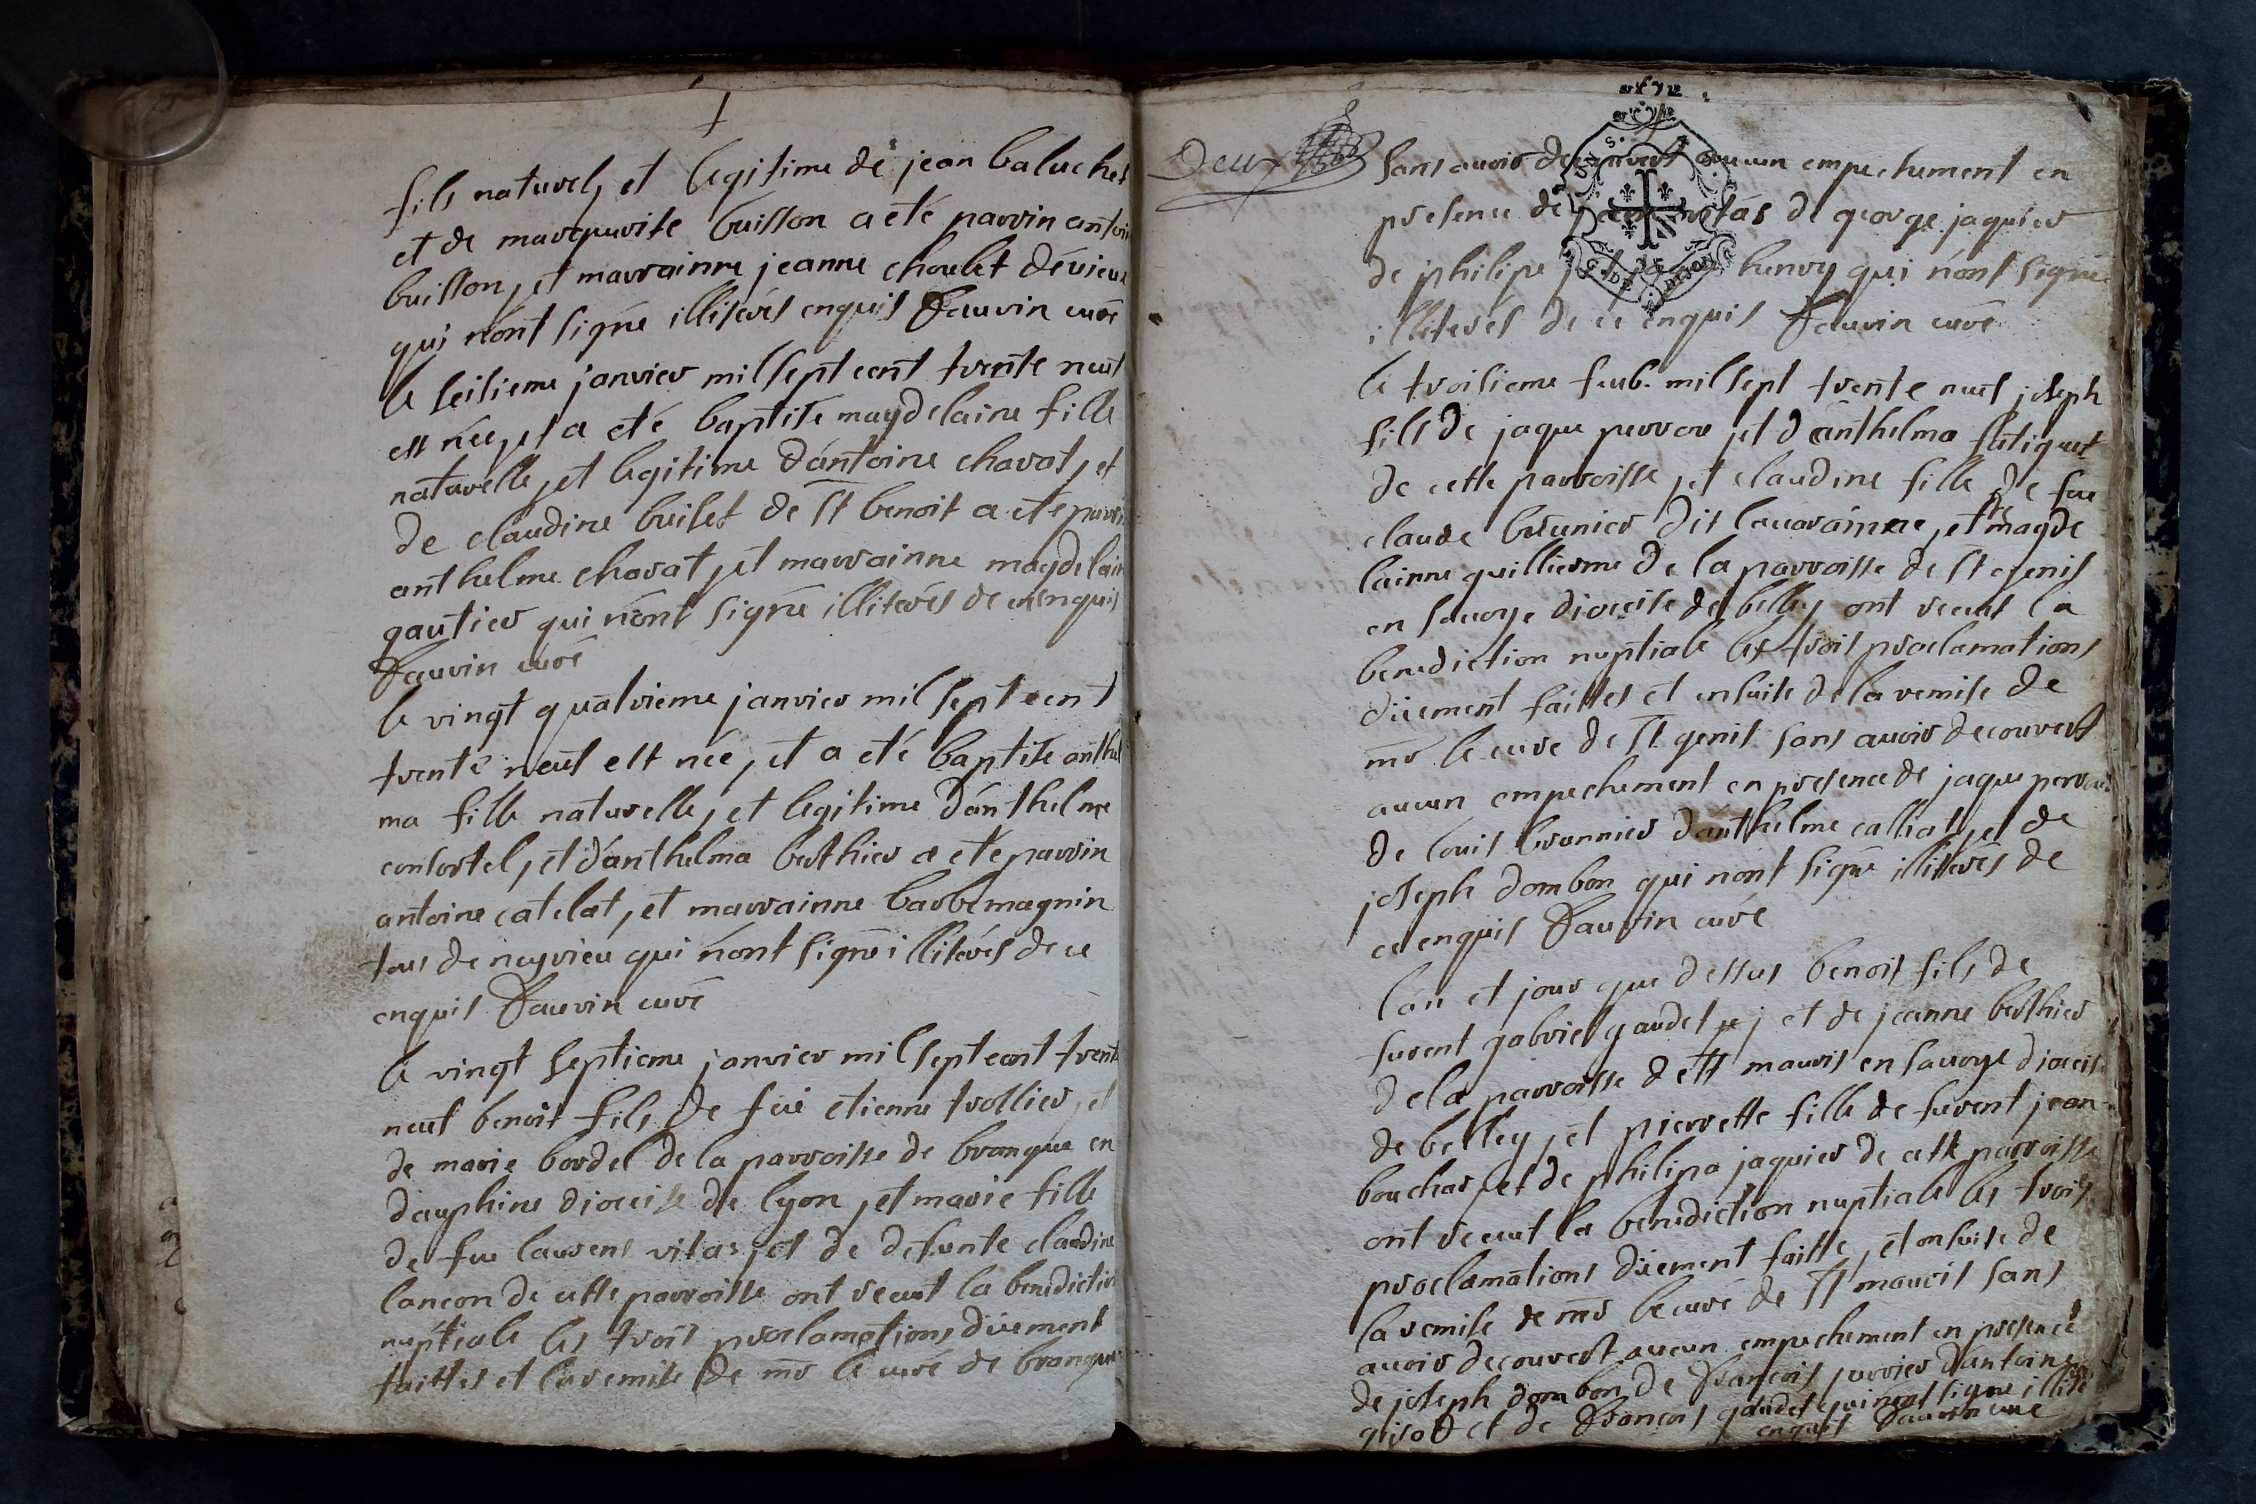 fils naturel, et legitime de jean baluchet
et de marguerite buisson a eté parrin antoin
buisson, et marrainne jeanne choulet dévieux
qui nónt signé illiterés enquis Fauvin curé
le seisieme janvier mil sept cent trente neuf
est née, et a eté baptisée magdelaine fille
naturelle, et legitime d'antoine chavat, et
de claudine buiset de St benoit a eté parrin
anthelme chavat, et marrainne magdelain
gautier qui nónt signé illiterés de ce enquis
Fauvin curé
le vingt quatrieme janvier mil sept cent
trente neuf est née, et a eté baptisée anthel
ma fille naturelle, et legitime d'anthelme
consortel, et d'anthelma berthier a eté parrin
antoine catelat, et marrainne barbe magnin
tous de neyrieu qui nónt signé illiterés de ce
enquis Fauvin curé
le vingt septieme janvier mil sept cent trente
neuf benoit fils de feu etienne trollier, et
de marie bordel de la parroisse de brangue en
dauphine diocese de lyon, et marie fille
de feu laurens vitas, et de defunte claudine
lancon de cette parroisse ont recut la benediction
nuptiale les trois proclamations düement
faittes et la remise de mr le curé de brangue
Deux
sans avoir decouvert aucun empechement en
presence de vitas de george jaquier
de philipe et henry qui nónt signé
illiterés de ce enquis Fauvin curé
le troisieme feub. mil sept trente neuf joseph
fils de jaque perron, et d'anthelma flutiquet
de cette parroisse, et claudine fille de feu
claude brunier dit lavaráinne, et de magde
lainne guillierme de la parroisse de St genis
en savoye diocese de belley ont recut la
benediction nuptiale les trois proclamations
düement faittes et ensuite de la remise de
mr le cure de St genis sans avoir decouvert
aucun empechement en presence de jaque perron
de louis brunnier d'anthelme calliat, et de
joseph dombon qui nont signé illiterés de
ce enquis Fauvin curé
l'an et jour que dessus benoit fils de
furent gabriel gaudet et de jeanne berthier
de la parroisse de St mauris en savoye diocese
de belley, et pierrette fille de furent jean
bouchar, et de philipa jaquier de cette parroisse
ont recut la benediction nuptiale les trois
proclamations düement faitte, et ensuite de
la remise de mr le curé de St mauris sans
avoir decouvert aucun empechement en presence
de joseph dombon de François jurrier d'antoine
guiot et de François gaudet qui nont signé illite
enquis Fauvin curé